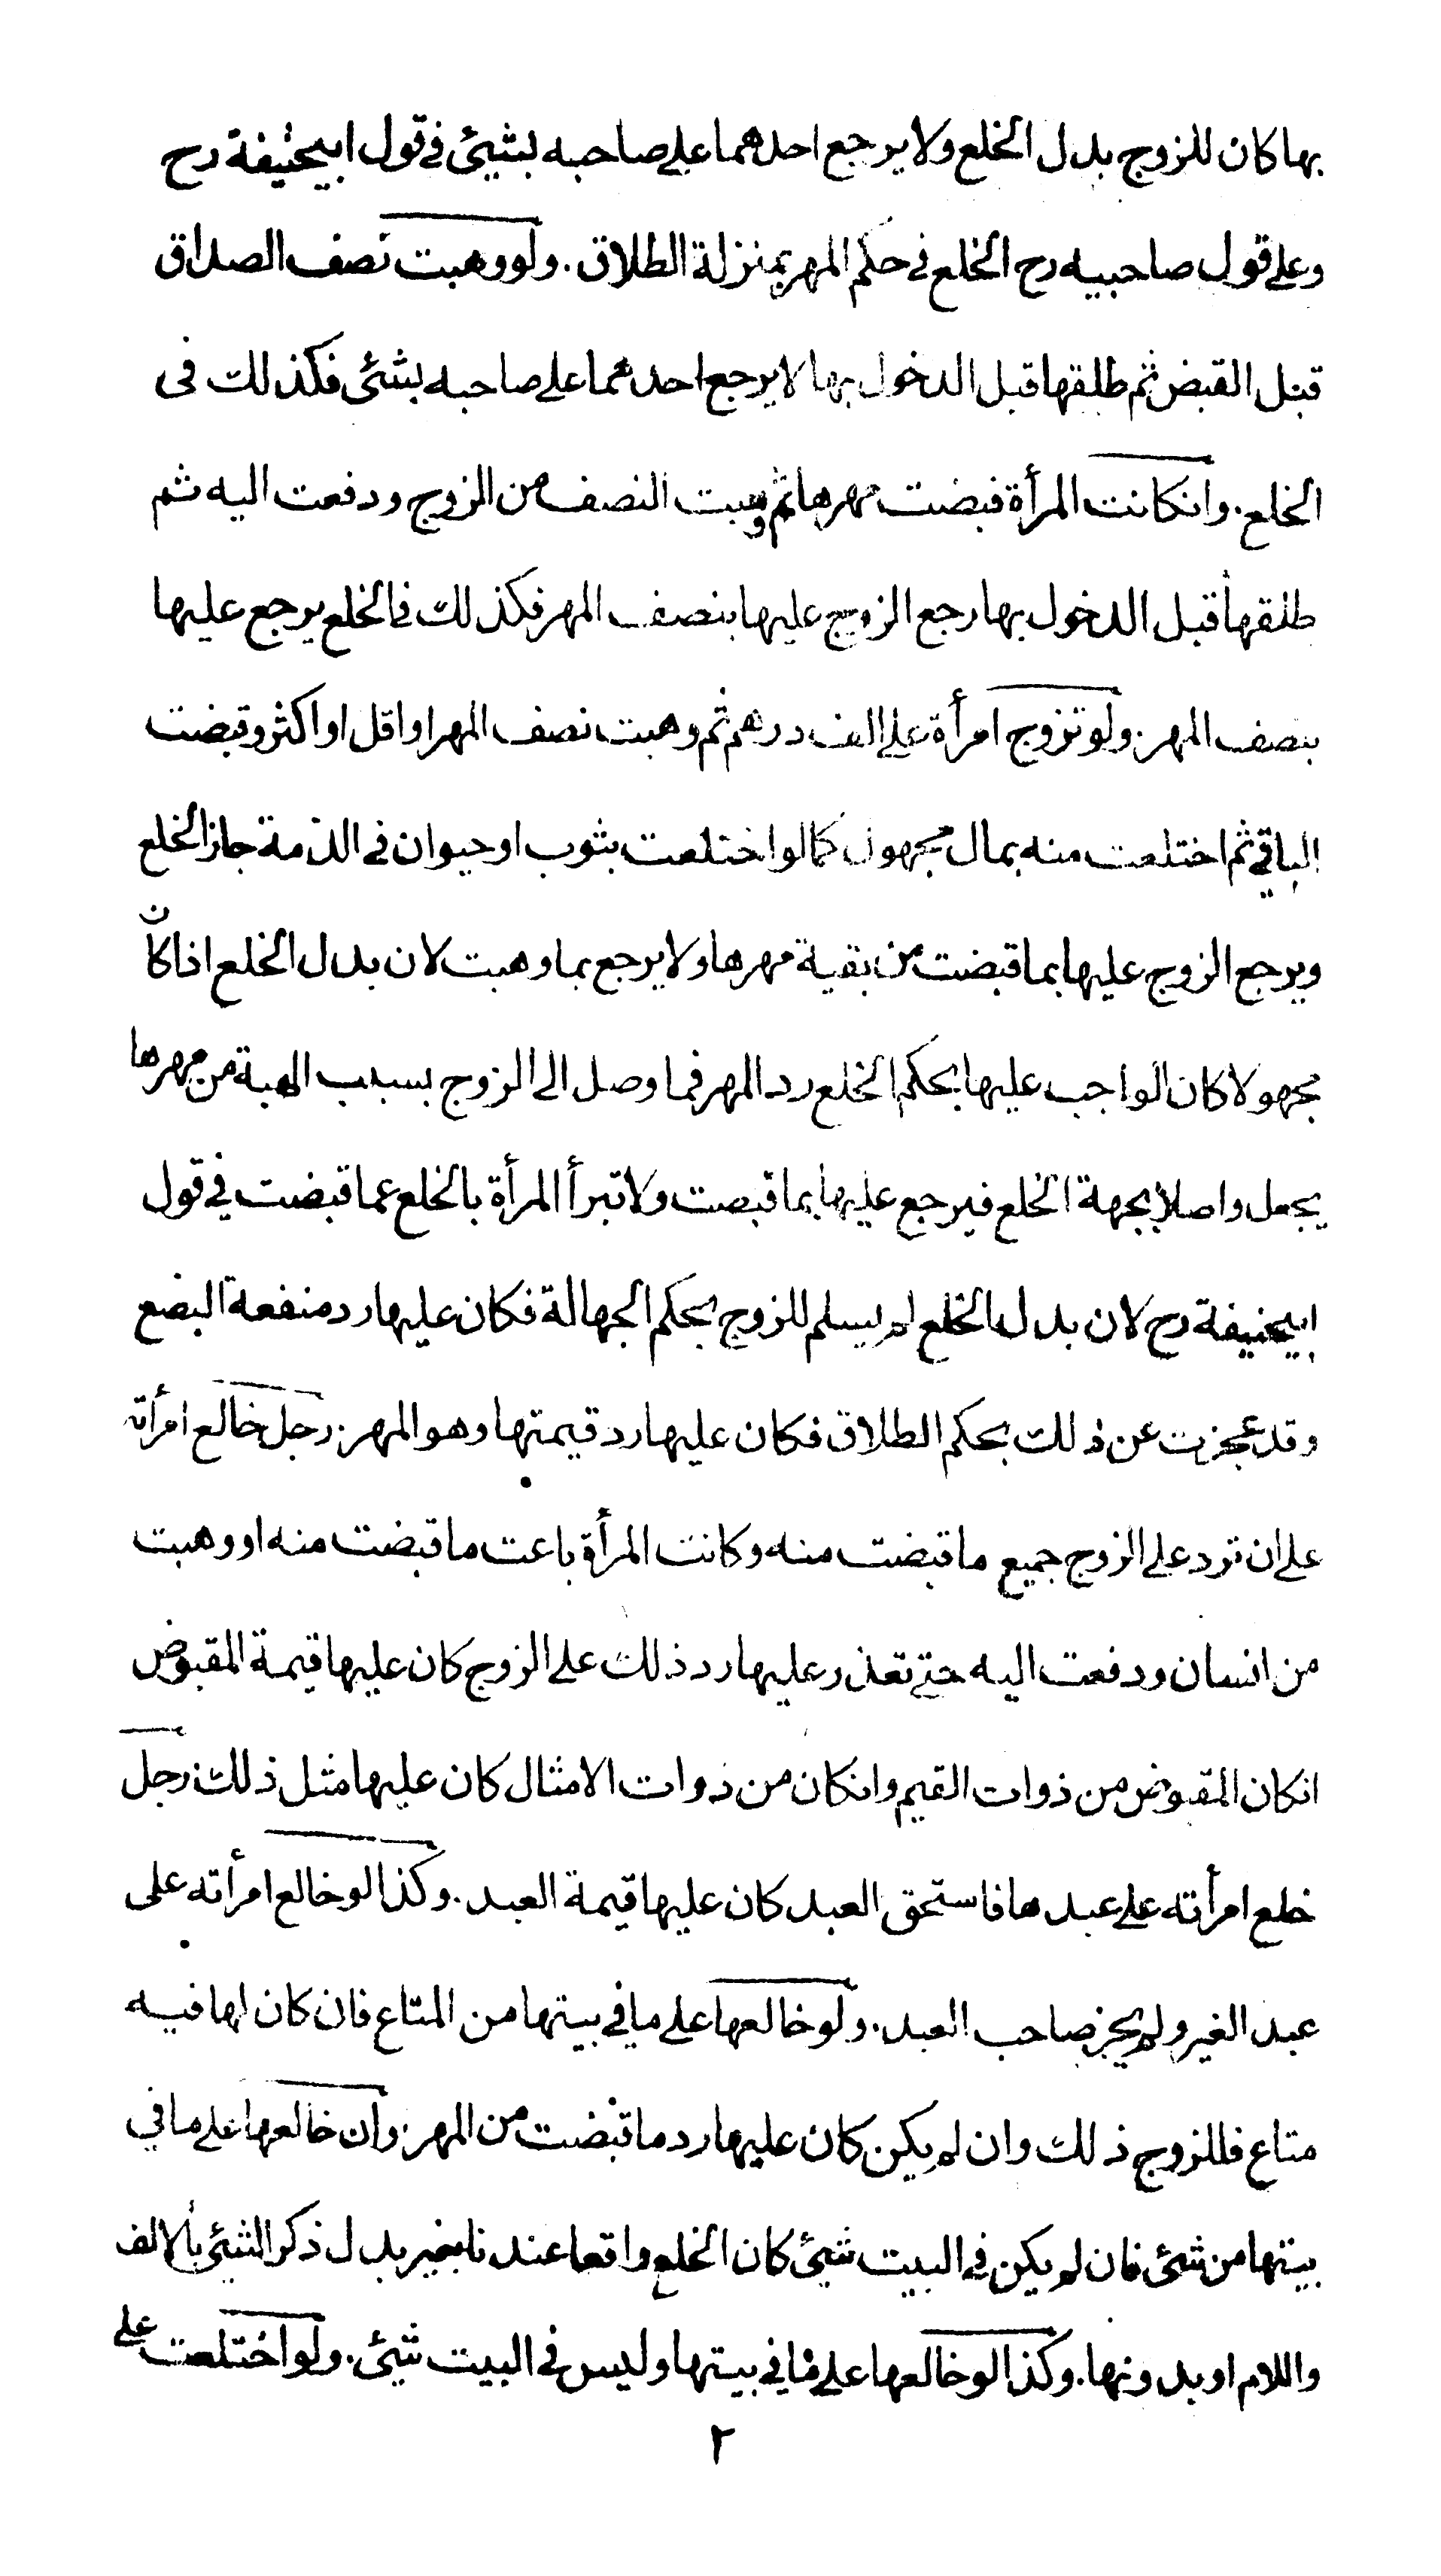 بها كان للزوج بدل الخلع ولا يرجع احدهما على صاحبه بشيئ في قول ابيحنيفة رح
وعلى قول صاحبيه رح الخلع في حكم المهر بمنزلة الطلاق . ولو وهبت نصف الصداق
قبل القبض ثم طلقها قبل الدخول بها لا يرجع احدهما على صاحبه بشئ فكذلك فى
الخلع . وانكانت المرأة قبضت مهرها ثم وهبت النصف من الزوج ودفعت اليه ثم
طلقها قبل الدخول بها رجع الزوج عليها بنصف المهر فكذلك في الخلع يرجع عليها
بنصف المهر . ولو تزوج امرأة على الف درهم ثم وهبت نصف المهر او اقل او اكثر وقبضت
الباقي ثم اختلعت منه بمال مجهول كما لو اختلعت بثوب او حيوان في الذمة جاز الخلع
ويرجع الزوج عليها بما قبضت من بقية مهرها ولا يرجع بما وهبت لان بدل الخلع اذا كان
مجهولا كان الواجب عليها بحكم الخلع رد المهر فما وصل الى الزوج بسبب الهبة من مهرها
يجعل واصلا بجهة الخلع فيرجع عليها بما قبضت ولا تبرأ المرأة بالخلع عما قبضت في قول
ابيحنيفة رح لان بدل الخلع لم يسلم للزوج بحكم الجهالة فكان عليها رد منفعة البضع
وقد عجزت عن ذلك بحكم الطلاق فكان عليها رد قيمتها وهو المهر . رجل خالع امرأته
على ان ترد على الزوج جميع ما قبضت منه وكانت المرأة باعت ما قبضت منه او وهبت
من انسان ودفعت اليه حتى تعذر عليها رد ذلك على الزوج كان عليها قيمة المقبوض
انكان المقبوض من ذوات القيم وانكان من ذوات الامثال كان عليها مثل ذلك . رجل
خلع امرأته على عبد ها فاستحق العبد كان عليها قيمة العبد . وكذا لو خالع امرأته على
عبد الغير ولم يجز صاحب العبد . ولو خالعها على ما في بيتها من المتاع فان كان لها فيه
متاع فللزوج ذلك وان لم يكن كان عليها رد ما قبضت من المهر . وان خالعها على ما في
بيتها من شئ فان لم يكن في البيت شيئ كان الخلع واقعا عندنا بغير بدل ذكر الشيئ بالالف
واللام او بدونها . وكذا لو خالعها على ما في بيتها وليس في البيت شيئ . ولو اختلعت على
٢